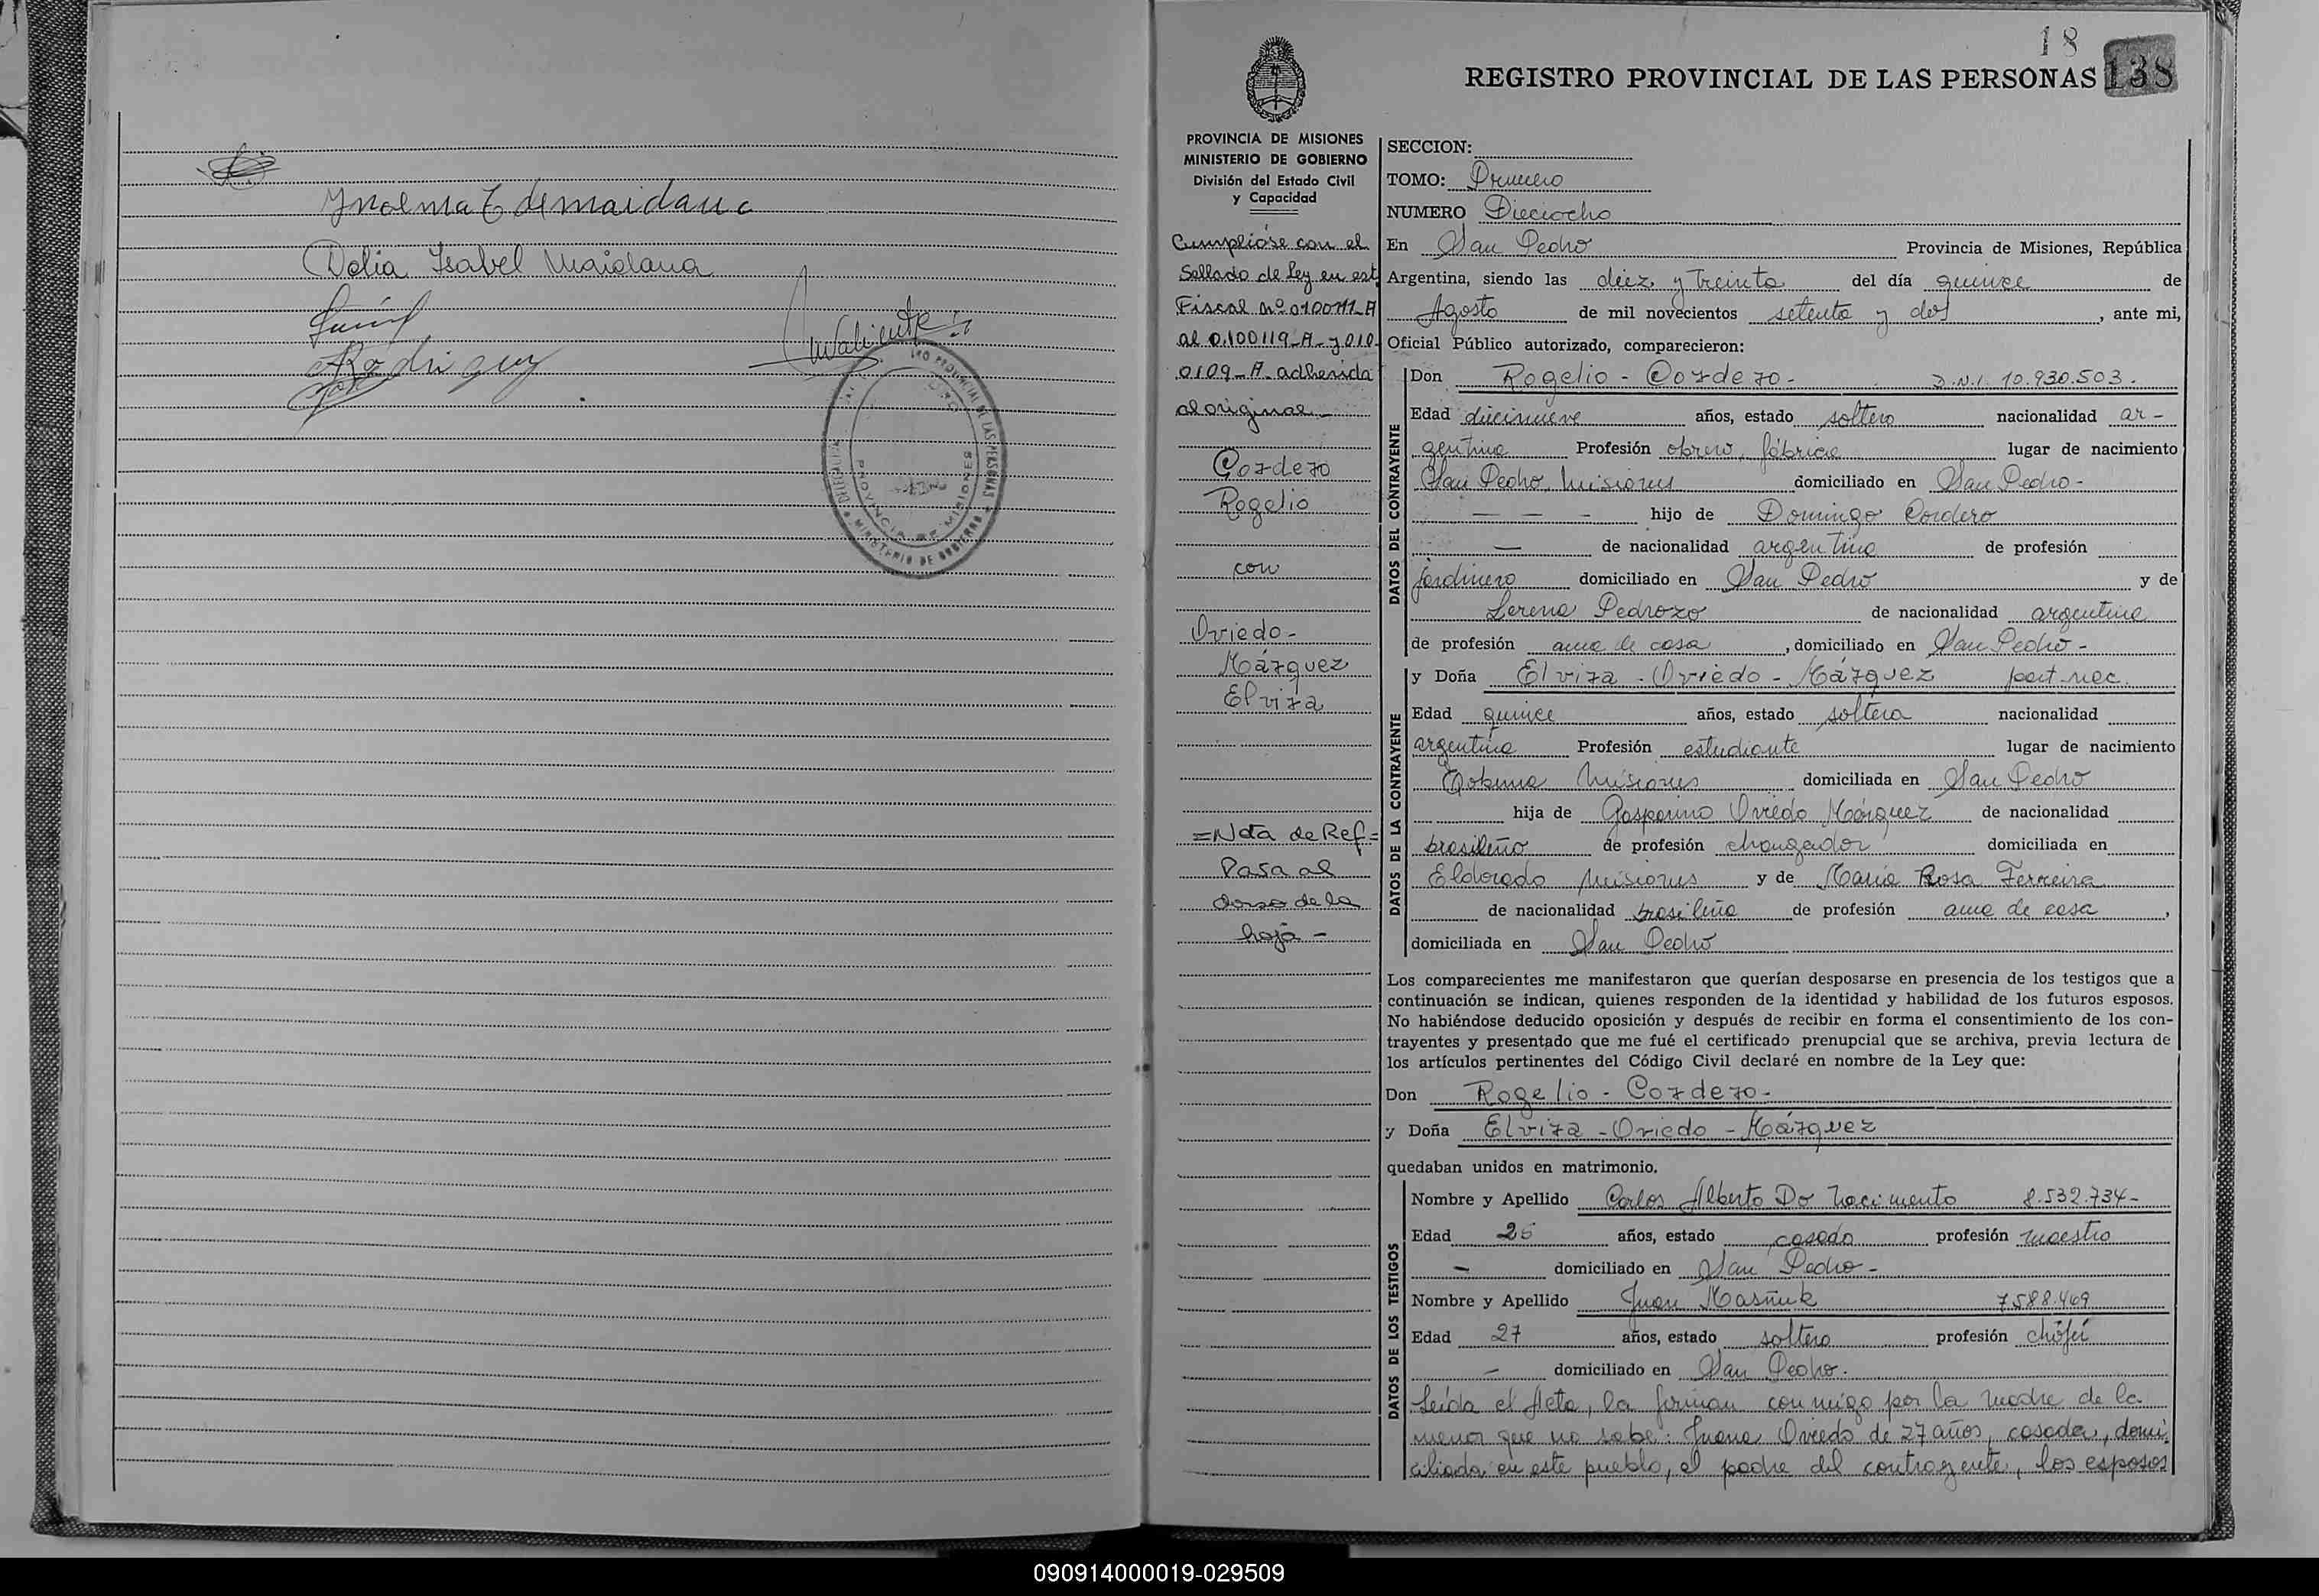 Delia Isabel Maidana
Rodriguez
Valiente
PROVINCIA DE MISIONES
MINISTERIO DE GOBIERNO
18
REGISTRO PROVINCIAL DE LAS PERSONAS 138
PROVINCIA DE MISIONES
MINISTERIO DE GOBIERNO
División del Estado Civil
y Capacidad
Cumplióse con el
Sellado de Ley en est.
Fiscal Nº 0100111-A
al 0.100119-A- y 010-
0109-A- adherida
al original-
Cordero
Rogelio
con
Oviedo-
Márquez
Elvira
=Nota de Ref=
Pasa al
dorso de la
hoja-
SECCION:
TOMO: Primero
NUMERO Dieciocho
En San Pedro Provincia de Misiones, República
Argentina, siendo las diez y treinta del día quince de
Agosto de mil novecientos setenta y dos, ante mi,
Oficial Público autorizado, comparecieron:
DATOS DEL CONTRAYENTE
Don Rogelio - Cordero- D.N.I. 10.930.503.
Edad diecinueve años, estado soltero nacionalidad ar-
gentina Profesión obrero fábrica lugar de nacimiento
San Pedro, Misiones domiciliado en San Pedro-
- - - hijo de Domingo Cordero
- de nacionalidad argentino de profesión
jardinero domiciliado en San Pedro y de
Lerena Pedrozo de nacionalidad argentina
de profesión ama de casa, domiciliado en San Pedro-
DATOS DE LA CONTRAYENTE
y Doña Elvira - Oviedo - Márquez part. nac.
Edad quince años, estado soltera nacionalidad
argentina Profesión estudiante lugar de nacimiento
Misiones domiciliada en San Pedro
hija de Gasparino Oviedo Márquez de nacionalidad
brasileño de profesión changador domiciliada en
Eldorado Misiones y de María Rosa Ferreira
de nacionalidad brasileña de profesión ama de casa,
domiciliada en San Pedro
Los comparecientes me manifestaron que querían desposarse en presencia de los testigos que a
continuación se indican, quienes responden de la identidad y habilidad de los futuros esposos.
No habiéndose deducido oposición y después de recibir en forma el consentimiento de los con-
trayentes y presentado que me fué el certificado prenupcial que se archiva, previa lectura de
los artículos pertinentes del Código Civil declaré en nombre de la Ley que:
Don Rogelio - Cordero-
y Doña Elvira - Oviedo - Márquez
quedaban unidos en matrimonio.
DATOS DE LOS TESTIGOS
Nombre y Apellido Carlos Alberto Do Nacimento 8.532.734-
Edad 25 años, estado casado profesión maestro
- domiciliado en San Pedro-
Nombre y Apellido Juan Masñuk 7588.469
Edad 27 años, estado soltero profesión chófer
- domiciliado en San Pedro.
Leída el Acta, la firman conmigo por la madre de la
menor que no sabe: Juana Oviedo de 27 años, casada, domi-
ciliada en este pueblo, el padre del contrayente, los esposos
090914000019-029509